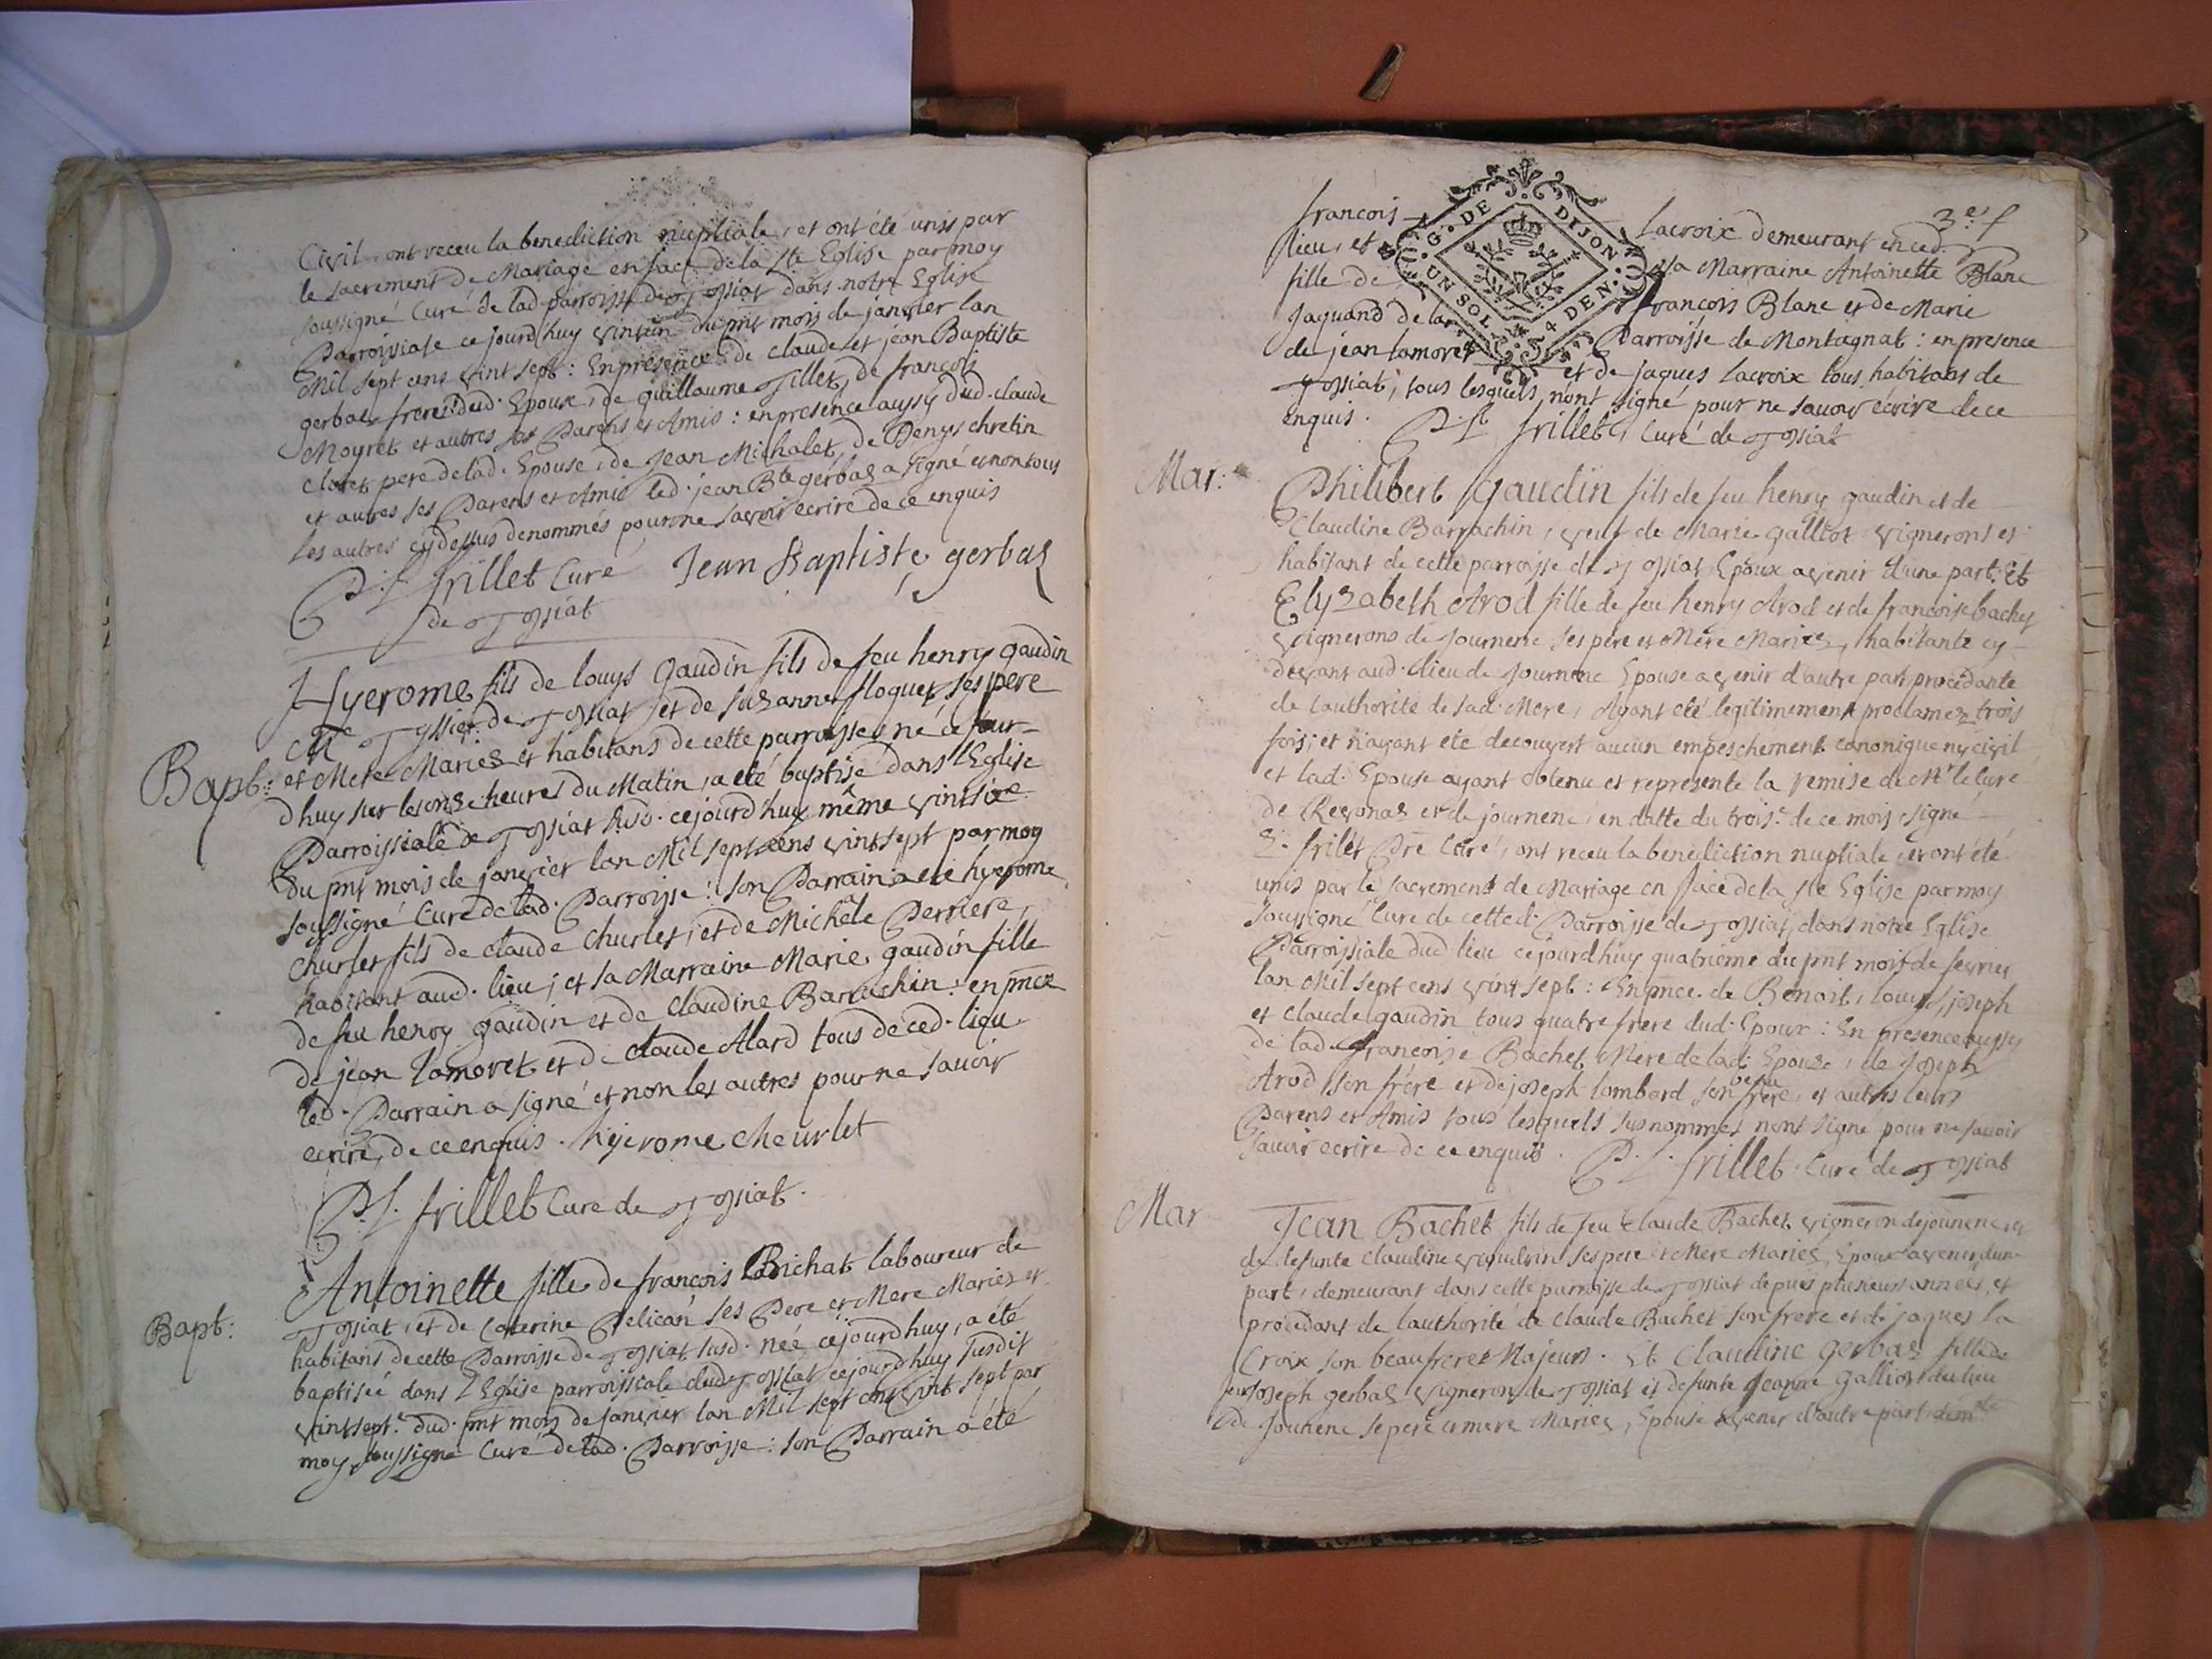 Civil ont receu la benediction nuptiale, et ont été unis par
le sacrement de Mariage en face de la Ste Eglise par moy
soussigné Curé de lad. parroisse de Tossiat dans notre Eglise
Parroissiale ce jourdhuy vint un du pnt mois de janvier lan
Mil sept cens vint sept : En presence de claude et jean Baptiste
gerbaz freres dud. Epoux, de guillaume Tillet, de françois
Moyret et autres ses Parens et Amis : en presence aussy dud. claude
claret pere de lad. Epouse, de Jean Michalet, de Denys chretin
et autres ses Parens et Amis led. jean Bte gerbaz a signé et non tous
les autres cy dessus denommés pour ne savoir ecrire de ce enquis
P. f. frillet Curé Jean Baptiste gerbaz
de Tossiat
Hyerome fils de louys Gaudin fils de feu henry gaudin
Me Tissier de Tossiat et de Suzanne floquet ses pere
Bapt: et Mere Mariez et habitans de cette parroisse né ce jour-
dhuy sur les onze heures du Matin, a eté baptisé dans l'Eglise
Parroissiale de Tossiat susd. cejourd'huy même vintsix
du pnt mois de janvier lan Mil sept cens vint sept par moy
soussigné Curé de lad. Parroisse : son Parrain a eté hyerome
churlet fils de claude churlet, et de Michèle Perriere,
habitant aud. lieu ; et sa Marraine Marie gaudin fille
de feu henry gaudin et de Claudine Barrachin : en pnce
de jean lamoret et de claude Alard tous de ced. lieu
led. Parrain a signé et non les autres pour ne savoir
ecrire, de ce enquis. hyerome cheurlet
P. f. frillet Curé de Tossiat.
Antoinette fille de françois Bichat laboureur de
Bapt: Tossiat, et de Caterine Pelican ses Pere et Mere Mariez et
habitans de cette Parroisse de Tossiat susd. née cejourdhuy, a été
baptisée dans l'Eglise parroissiale dud. Tossiat cejourdhuy susdit
vintsept.e dud. pnt mois de janvier lan Mil sept cent vint sept par
moy soussigné Curé de lad. Parroisse : son Parrain a été
3e. f
francois lacroix demeurant en ced.
lieu, et sa Marraine Antoinette Blanc
fille de francois Blanc et de Marie
Jaquand de la Parroisse de Montagnat : en presence
de jean lamoret et de jaques lacroix tous habitans de
Tossiat, tous lesquels nont signé pour ne savoir ecrire de ce
enquis. P. f. frillet, Curé de Tossiat
G. DE DIJON
UN SOL 4 DEN.
Mar: Philibert Gaudin fils de feu henry gaudin et de
Claudine Barrachin, veuf de Marie galliot vignerons et
habitant de cette parroisse de Tossiat Epoux avenir d'une part. Et
Elyzabeth Arod fille de feu henry Arod et de francoise bachet
vignerons de Journene ses pere et Mere Mariez, habitante cy
devant aud. lieu de Journene Epouse avenir d'autre part procedante
de lauthorité de sad. Mere, Ayant eté legitimement proclamez trois
fois, et n'ayant eté decouvert aucun empeschement canonique ny civil
et lad. Epouse ayant obtenu et representé la remise de Mr le Curé
de Revonaz et de journene, en datte du trois.e de ce mois signé
frilet Pre Curé, ont receu la benediction nuptiale et ont été
unis par le sacrement de Mariage en face de la Ste Eglise par moy
soussigné Curé de cetted. Parroisse de Tossiat, dans notre Eglise
Parroissiale dud. lieu cejourdhuy quatrieme du pnt mois de fevrier
lan Mil sept cens vint sept : En pnce. de Benoit, louys, joseph
et Claude gaudin tous quatre frere dud. Epoux : En presence aussy
de lad. francoise Bachet Mere de lad. Epouse, de Joseph
Arod son frére et de joseph lombard son beau frere, et autres leurs
Parens et Amis tous lesquels susnommés nont signé pour ne savoir
savoir ecrire de ce enquis. P. f. frillet. Curé de Tossiat
Mar Jean Bachet fils de feu claude Bachet vigneron de jounene et
de defunte claudine ses pere et Mere Mariés, Epoux avenir dune
part, demeurant dans cette parroisse de Tossiat depuis plusieurs années, et
procedant de lauthorité de Claude Bachet son frere et de jaques la
Croix son beaufrere Majeurs. Et Claudine Gerbaz fille de
feu Joseph gerbaz vigneron de Tossiat et defunte Jeanne Galliot du lieu
de Jounene se pere et mere Mariez, Epouse avenir d'autre part